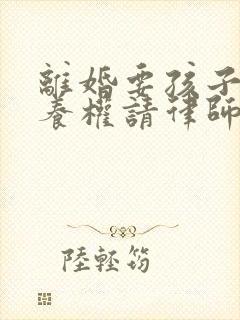 離婚要孩子
養權請律師
陸輕筠